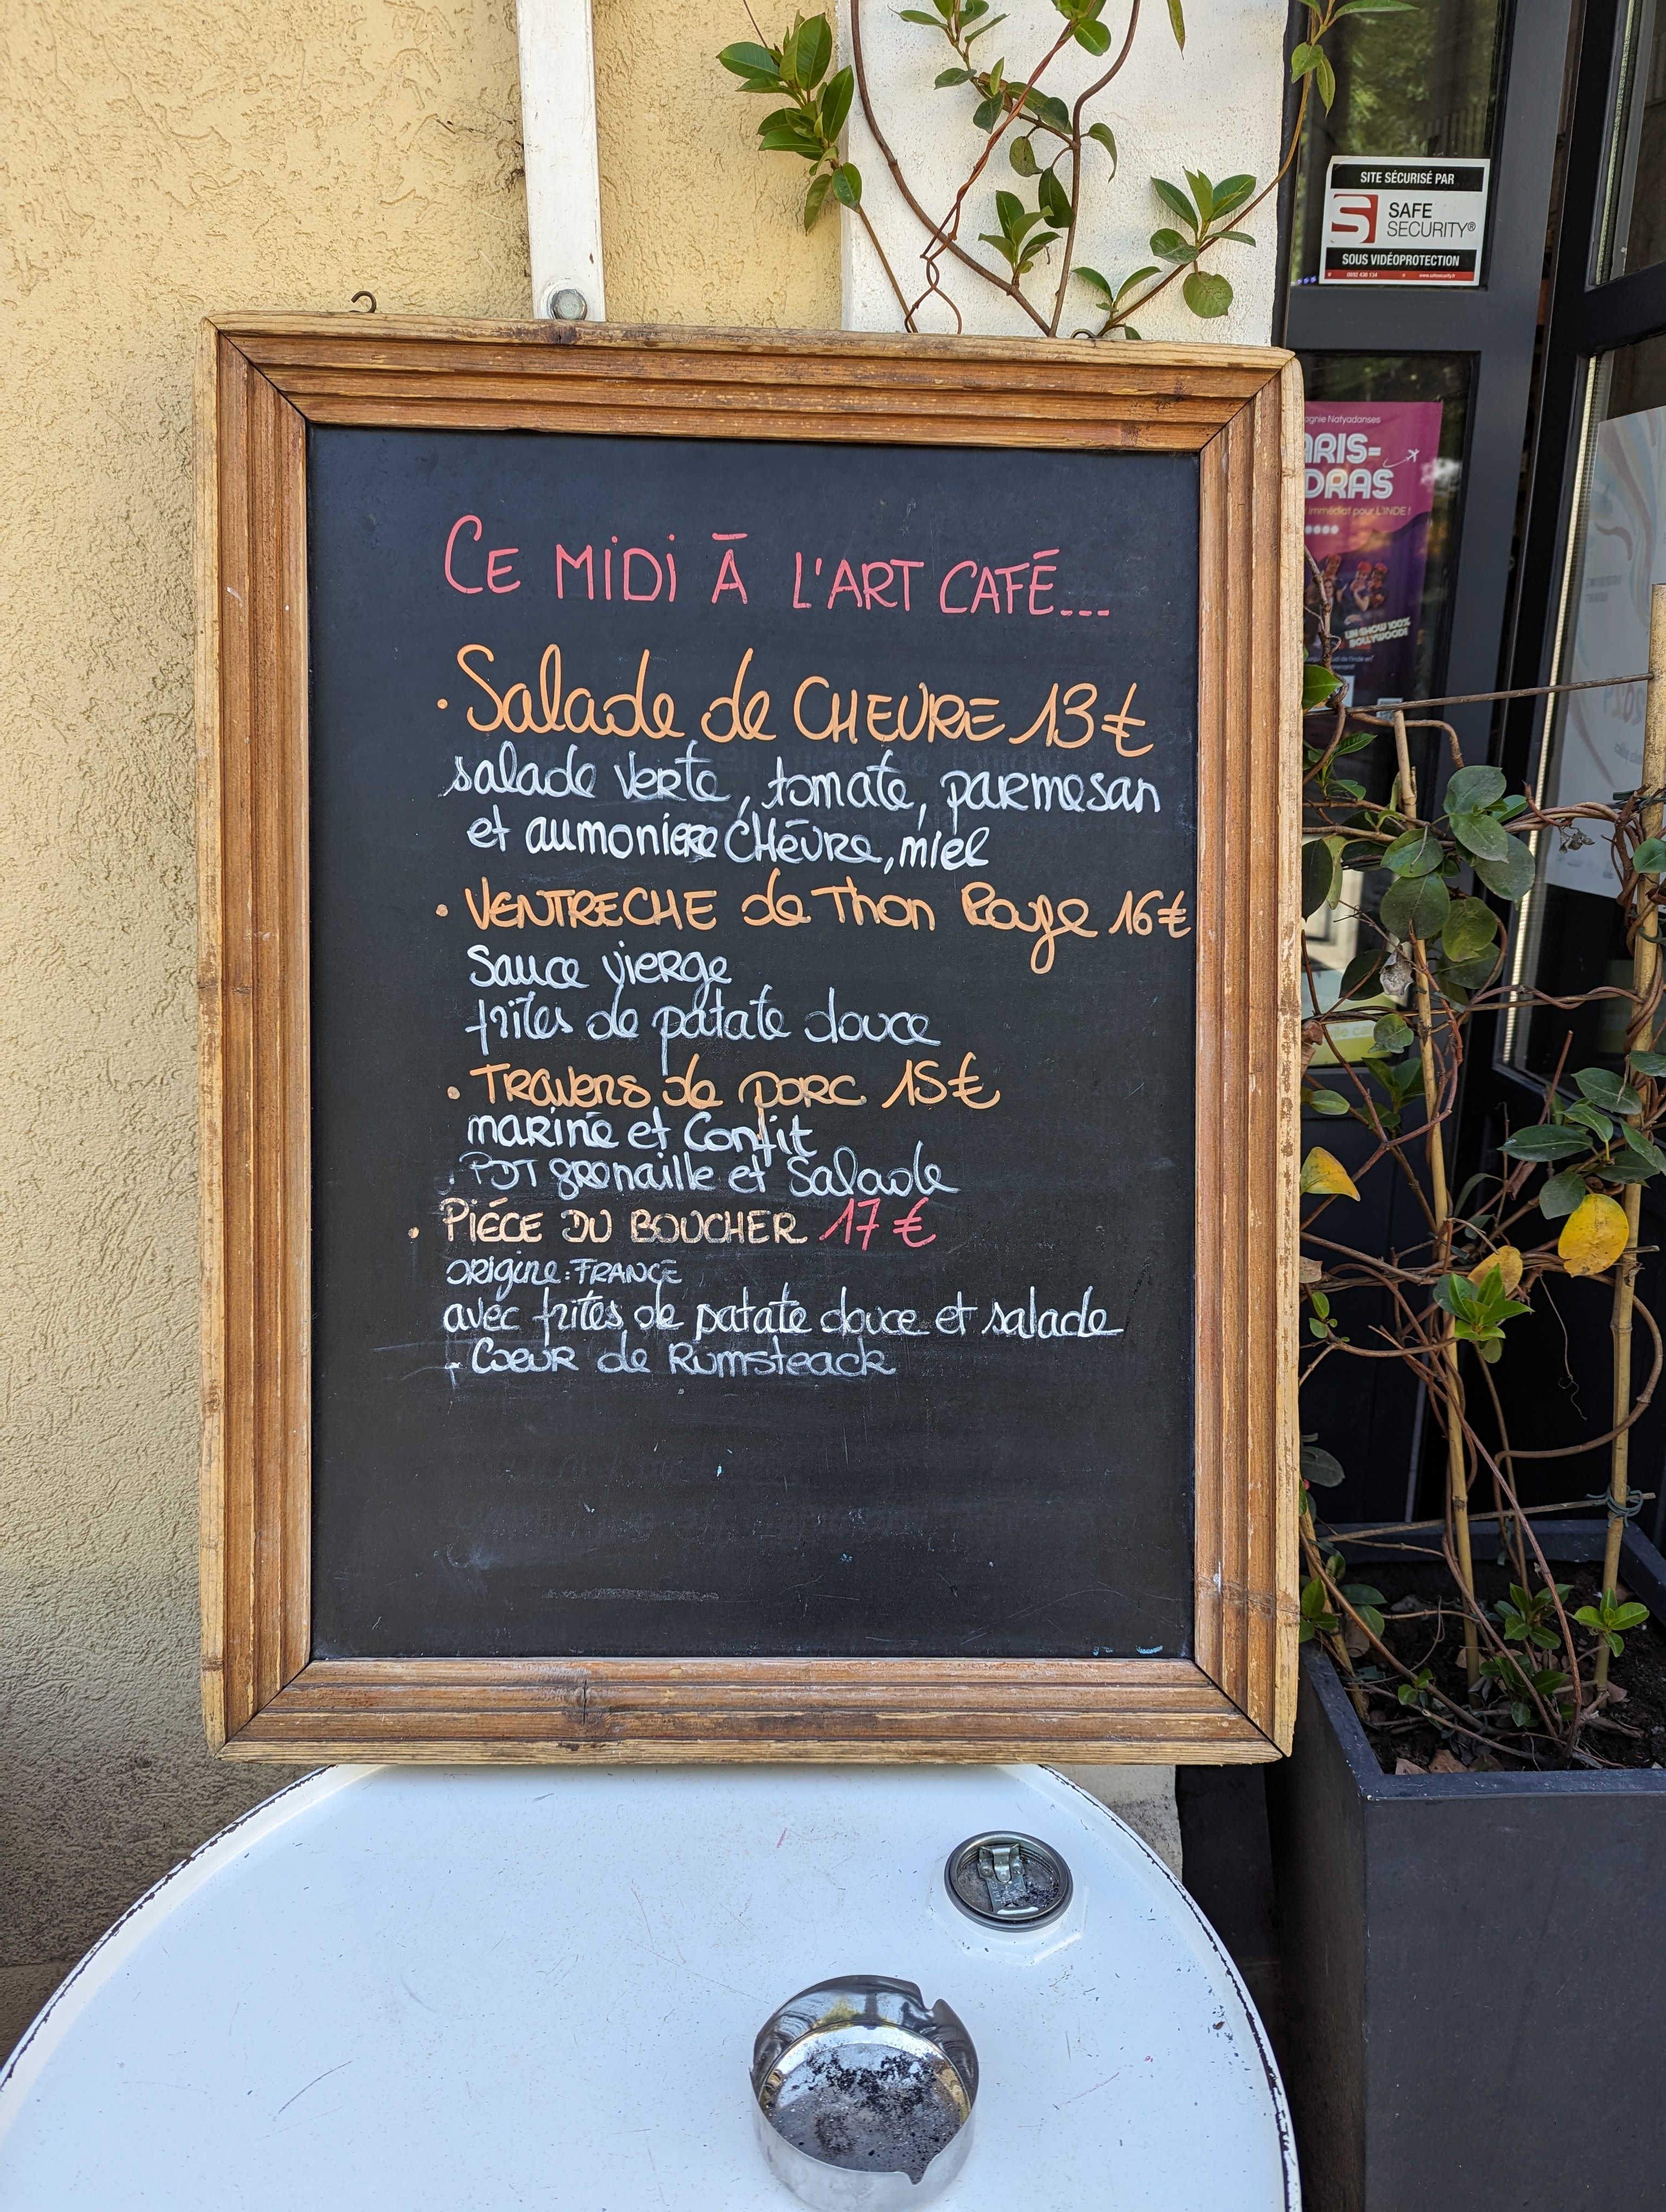 CE MiDi À L'ART CAFÉ...
• Salade de CHEVRE 13€
salade verte, tomate, parmesan
et aumoniere CHèvre, miel
• VENTRECHE de Thon Rouge 16€
Sauce vierge
frites de patate douce
• Travers de porc 15€
mariné et Confit
PDT grenaille et Salade
• PIÉCE DU BOUCHER 17€
origine: FRANCE
avec frites de patate douce et salade
- Coeur de Rumsteack
SITE SÉCURISÉ PAR
SAFE
SECURITY®
SOUS VIDÉOPROTECTION
agnie Natyadanses
ARIS-
DRAS
immédiat pour L'INDE !
UN SHOW 100%
BOLLYWOOD!